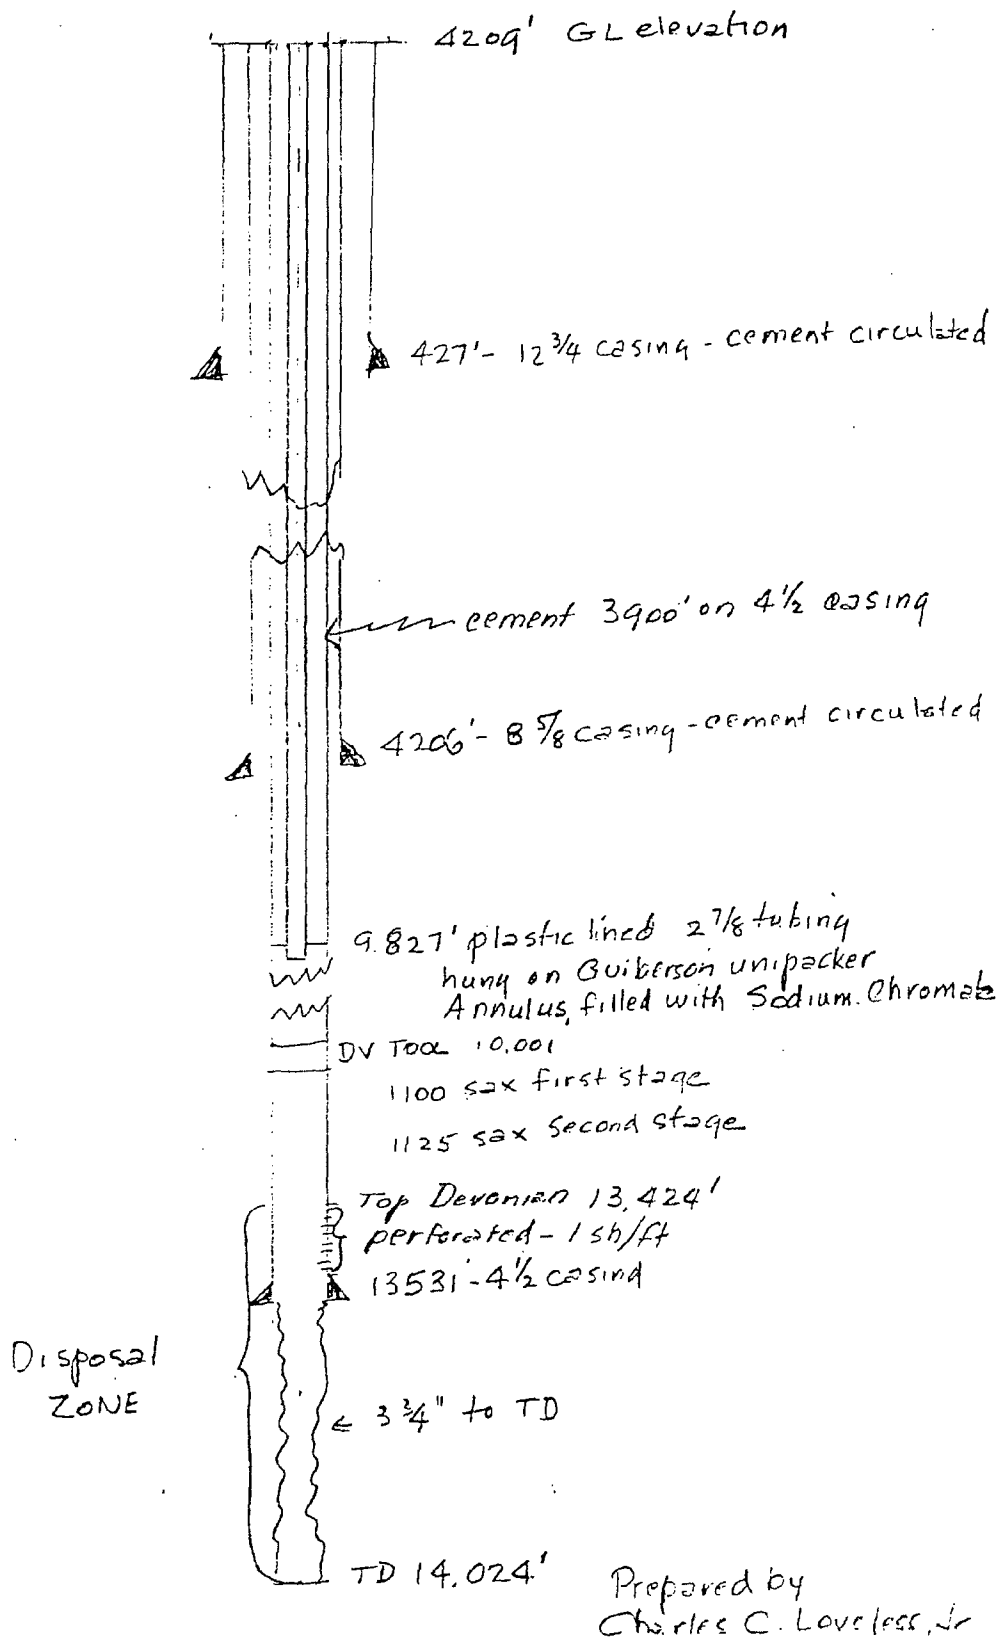 4209' GL elevation
427' - 12 3/4 casing - cement circulated
cement 3900' on 4 1/2 casing
4206' - 8 5/8 casing - cement circulated
9.827' plastic lined 2 7/8 tubing
hung on Guiberson unipacker
Annulus, filled with Sodium. Chromate
DV TOOL 10,001
1100 sax first stage
1125 sax second stage
Top Devonian 13,424'
perforated - 1 sh/ft
13531' - 4 1/2 casing
Disposal
ZONE
3 3/4" to TD
TD 14.024'
Prepared by
Charles C. Loveless, Jr